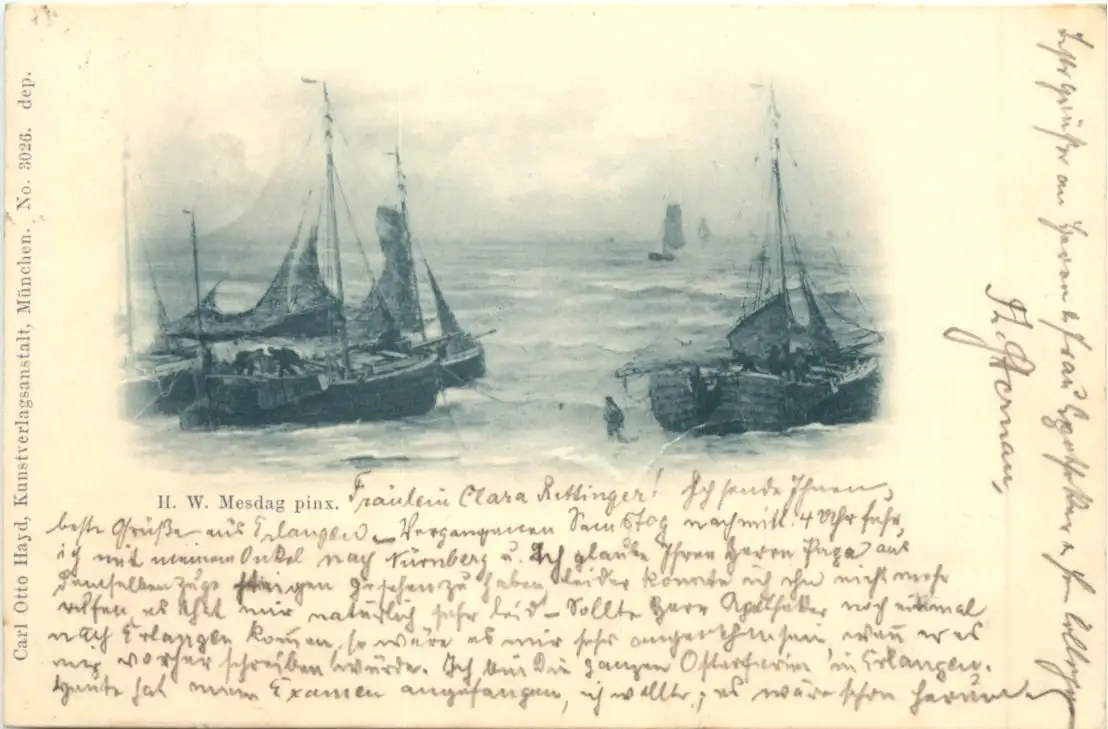 Carl Otto Hayd, Kunstverlagsanstalt, München. No. 3026. dep.
H. W. Mesdag pinx.
Fräulein Clara Rettinger! Ich sende Ihnen,
beste Grüße aus Erlangen – Vergangenen Samstag nachmitt. 4 Uhr fuhr,
ich mit meinem Onkel nach Nürnberg u. Ich glaube Ihren Herrn Papa aus
demselben Zuge steigen gesehen zu haben, leider konnte ich ihn nicht mehr
rufen, es that mir natürlich sehr leid – Sollte Herr Apotheker noch einmal
nach Erlangen kommen, so wäre es mir sehr angenehm sein, wenn er es
mir vorher schreiben würde. Ich bin die ganzen Osterferien in Erlangen.
Heute hat mein Examen angefangen, ich wollte, es wäre schon herum
grüße an Herrn & Frau Apotheker &